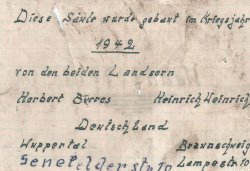 Diese Säule wurde gebaut im Kriegsjahr
1942
von den beiden Landsern
Herbert Bürres Heinrich Weinrich
Deutschland
Wuppertal Braunschweig
Senefelderstr. Lampestr.